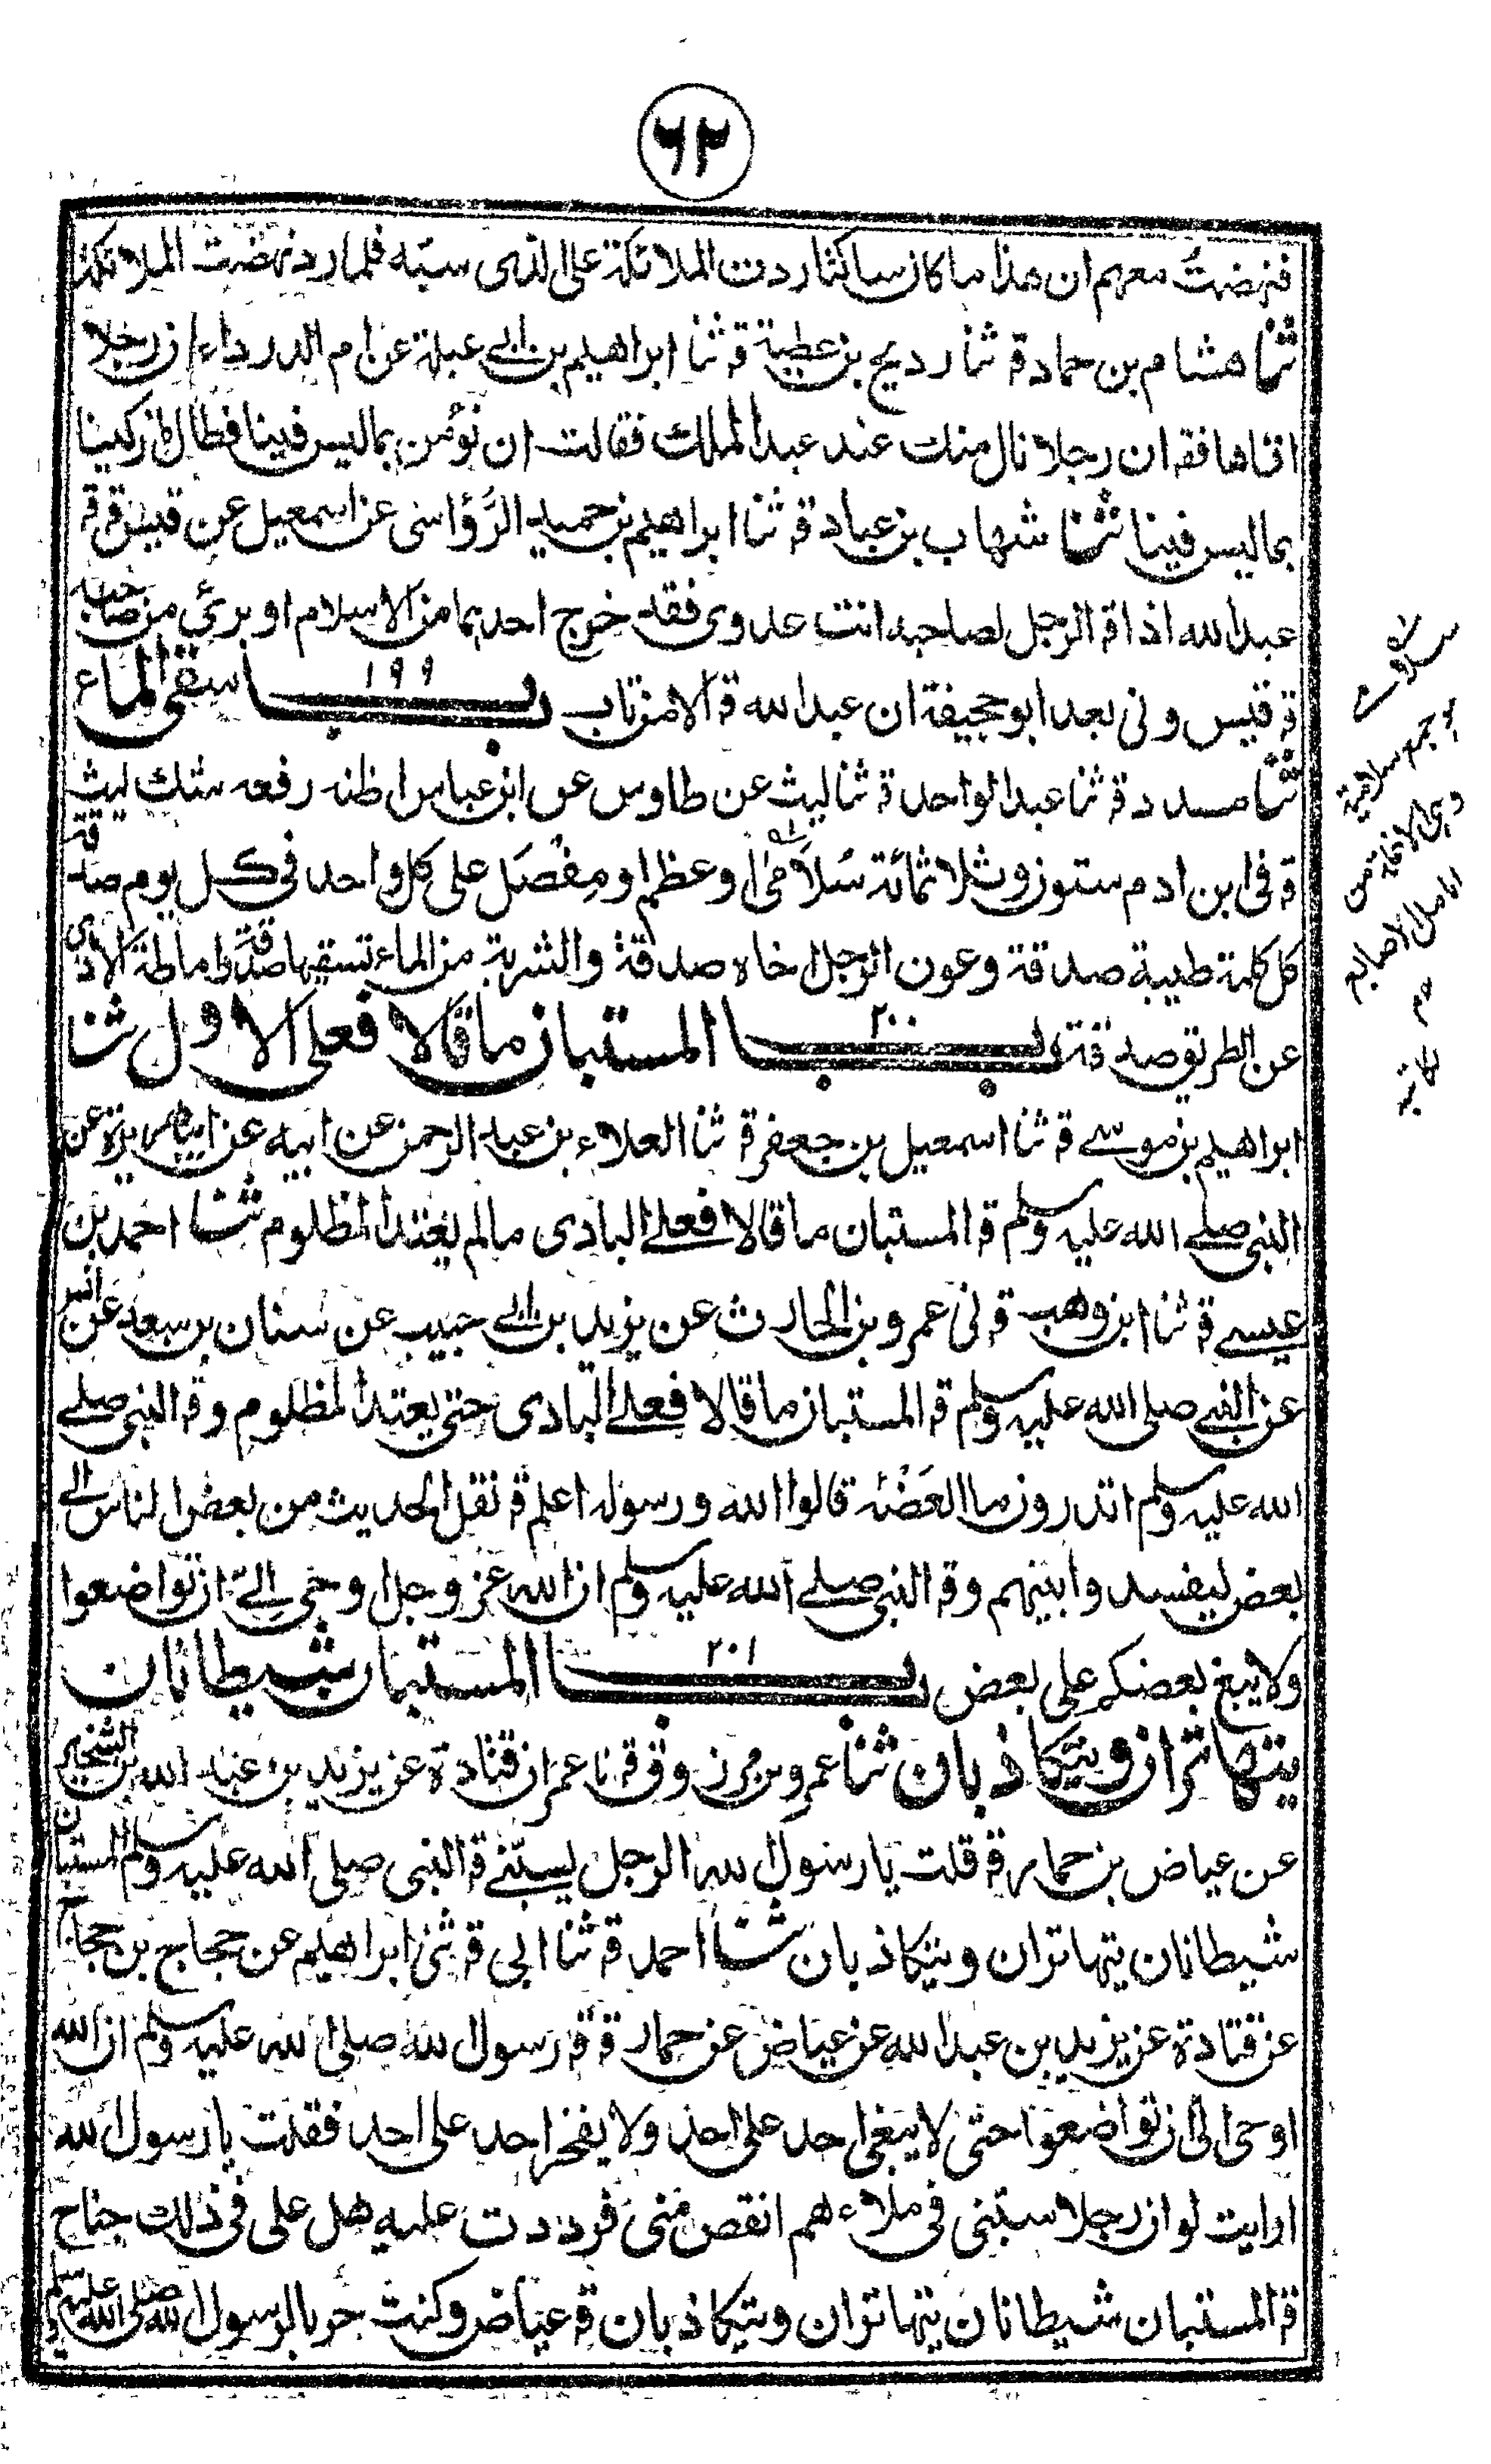 ٦٢
فنهضتُ معهم ان هذا ما كان ساكتا ردت الملائكة على الذى سبّه فلما رد نهضت الملائكة
ثنا هشام بن حماد قـ ثنا رديح بن عطية قـ ثنا ابراهيم بن ابي عبلة عن ام الدرداء ان رجلا
اتاها فقـ ان رجلا نال منك عند عبد الملك فقالت ان نؤبن بما ليس فينا فطال ما زكينا
بما ليس فينا ثنا شهاب بن عباد قـ ثنا ابراهيم بن حميد الرُّؤاسى عن اسمعيل عن قيس قـ قـ
عبد الله اذا قـ الرجل لصاحبه انت عدوى فقد خرج احدهما من الاسلام او برئ من صاحبه
قـ قيس ونى بعد ابو جحيفة ان عبد الله قـ الا من تاب بـــاب ١٩٩ سقى الماء
ثنا مسدد قـ ثنا عبد الواحد قـ ثنا ليث عن طاوس عن ابن عباس اظنه رفعه شك ليث
قـ فى ابن ادم ستون وثلاثمائة سُلَامٰى او عظم او مِفْصَل على كل واحد فى كل يوم صدقة
كل كلمة طيبة صدقة وعون الرجل اخاه صدقة والشربة من الماء تسقيها صدقة واماطة الاذى
عن الطريق صدقة بـــاب ٢٠٠ المستبان ما قالا فعلى الاول ثنا
ابراهيم بن موسى قـ ثنا اسمعيل بن جعفر قـ ثنا العلاء بن عبد الرحمن عن ابيه عن ابى هريرة عن
النبى صلى الله عليه وسلم قـ المستبان ما قالا فعلى البادى مالم يعتد المظلوم ثنا احمد بن
عيسى قـ ثنا ابن وهب قـ نى عمرو بن الحارث عن يزيد بن ابي حبيب عن سنان بن سعد عن انس
عن النبى صلى الله عليه وسلم قـ المستبان ما قالا فعلى البادى حتى يعتد المظلوم وقـ النبى صلى
الله عليه وسلم اتدرون ما العَضْه قالوا الله ورسوله اعلم قـ نقل الحديث من بعض الناس الى
بعض ليفسدوا بينهم وقـ النبى صلى الله عليه وسلم ان الله عز وجل اوحى الىّ ان تواضعوا
ولا يبغ بعضكم على بعض بـــاب ٢٠١ المستبان شيطانان
يتهاتران ويتكاذبان ثنا عمرو بن مرزوق قـ نا عمران قتادة عن يزيد بن عبد الله بن الشخير
عن عياض بن حمار قـ قلت يا رسول الله الرجل يسبّنى قـ النبى صلى الله عليه وسلم المستبان
شيطانان يتهاتران ويتكاذبان ثنا احمد قـ ثنا ابى قـ ثنى ابراهيم عن حجاج بن حجاج
عن قتادة عن يزيد بن عبد الله عن عياض عن حمار قـ قـ رسول الله صلى الله عليه وسلم ان الله
اوحى الى ان تواضعوا حتى لا يبغى احد على احد ولا يفخر احد على احد فقلت يا رسول الله
ارايت لو ان رجلا سبّنى فى ملاء هم انقص منى فرددت عليه هل على فى ذلك جناح
قـ المستبان شيطانان يتهاتران ويتكاذبان قـ عياض وكنت حربا لرسول الله صلى الله عليه وسلم
جمع سلامية
وهى الانملة من
انامل الاصابع